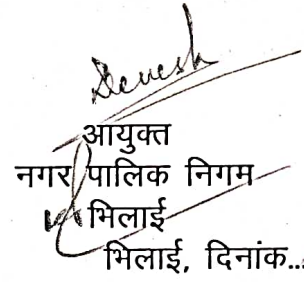 Devesh
आयुक्त
नगर पालिक निगम
भिलाई
भिलाई, दिनांक..